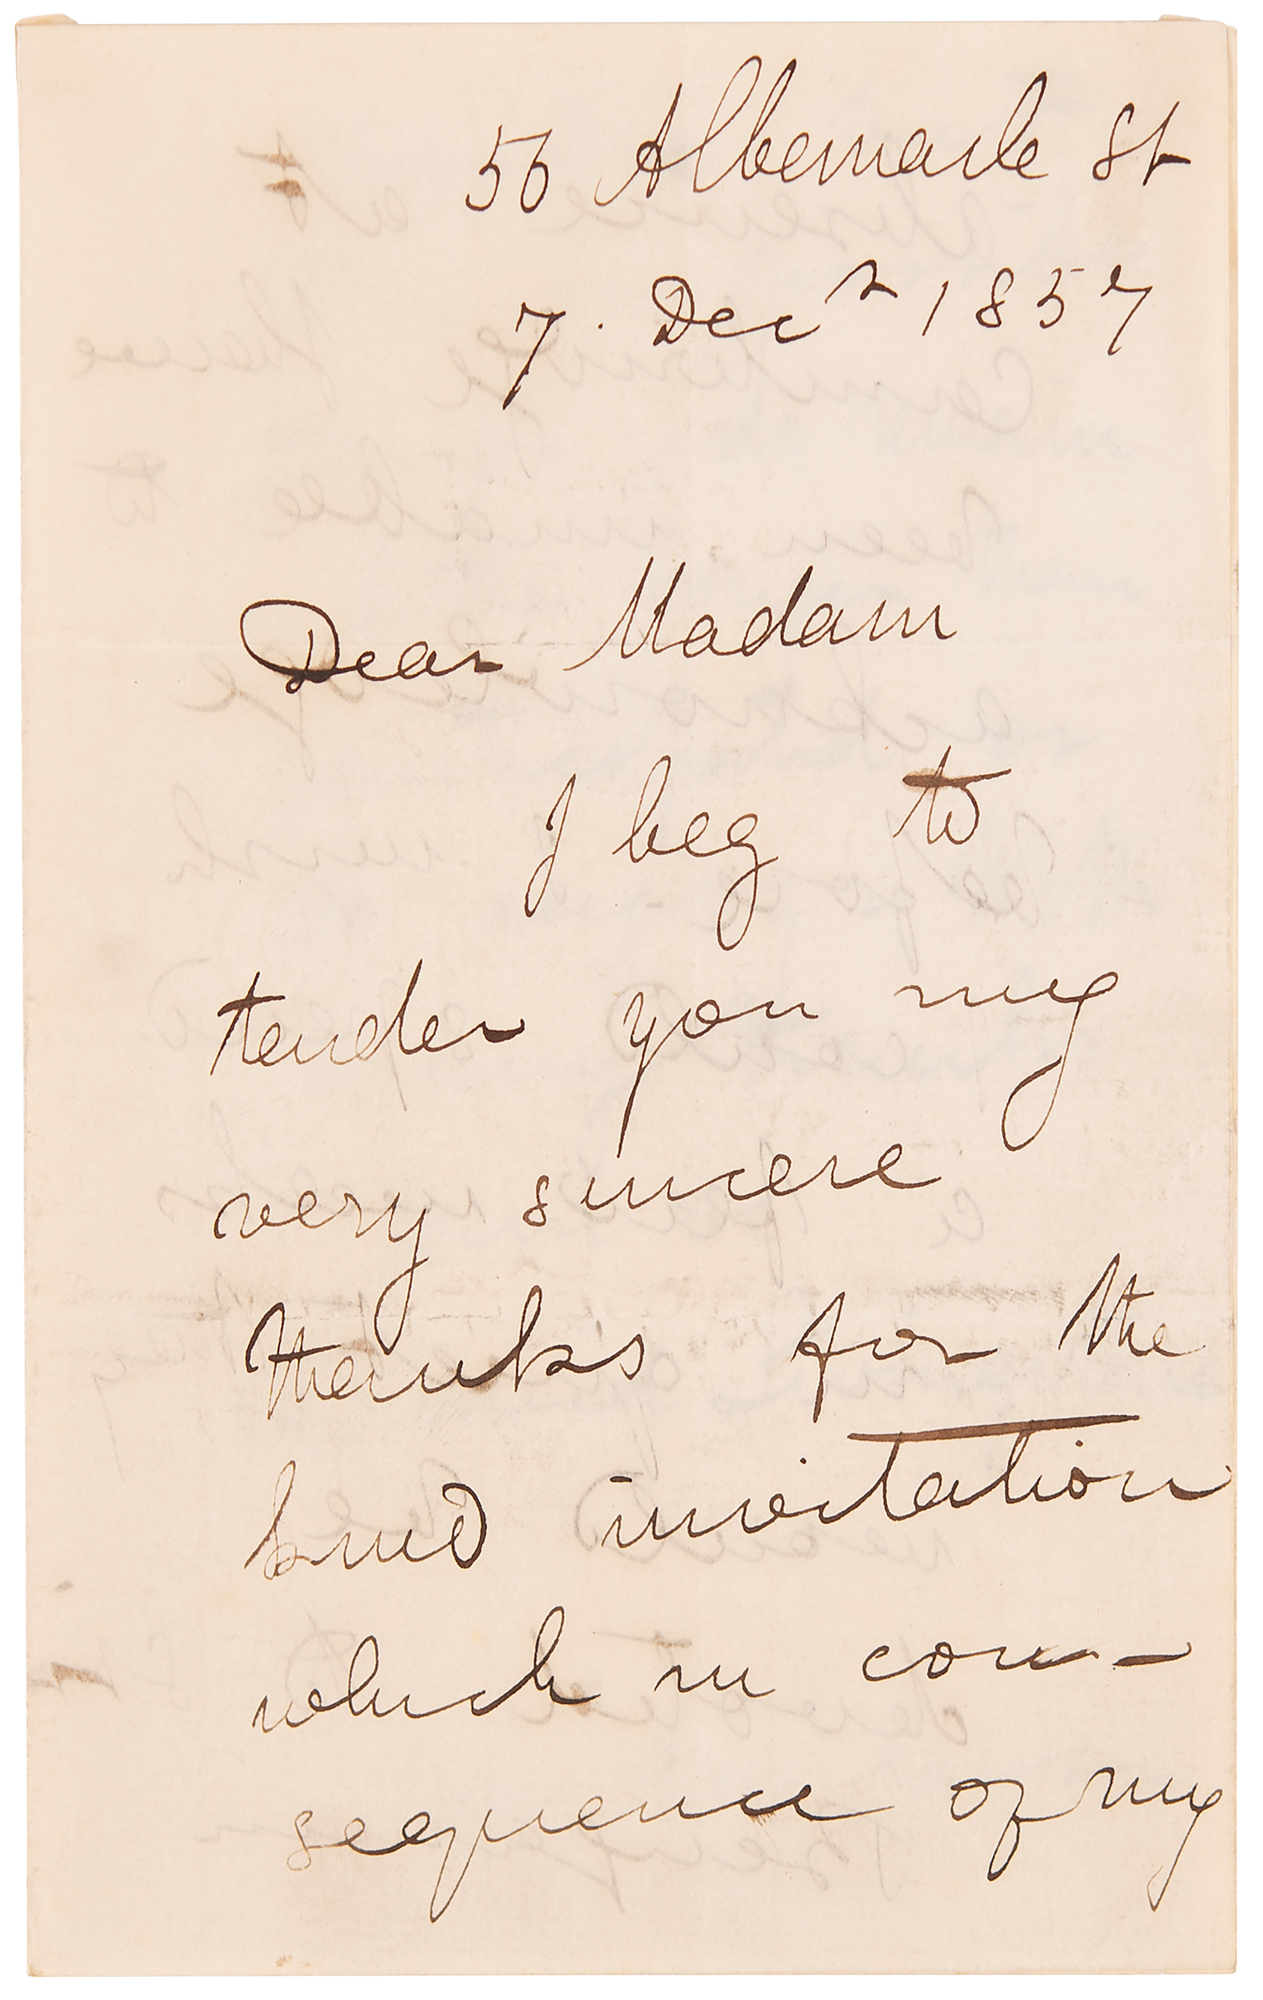 56 Albemarle St
7. Decr 1857
Dear Madam
I beg to
tender you my
very sincere
thanks for the
kind invitation
which in con-
sequence of my